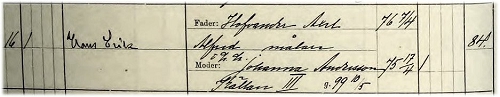 Fader: Hofvander Axel 76 7/4
16 1 Hans Erik Alfred målare 84.
o. h. h.
Moder: Johanna Andersson 75 17/4 1
Kållan III g. 99 10/5